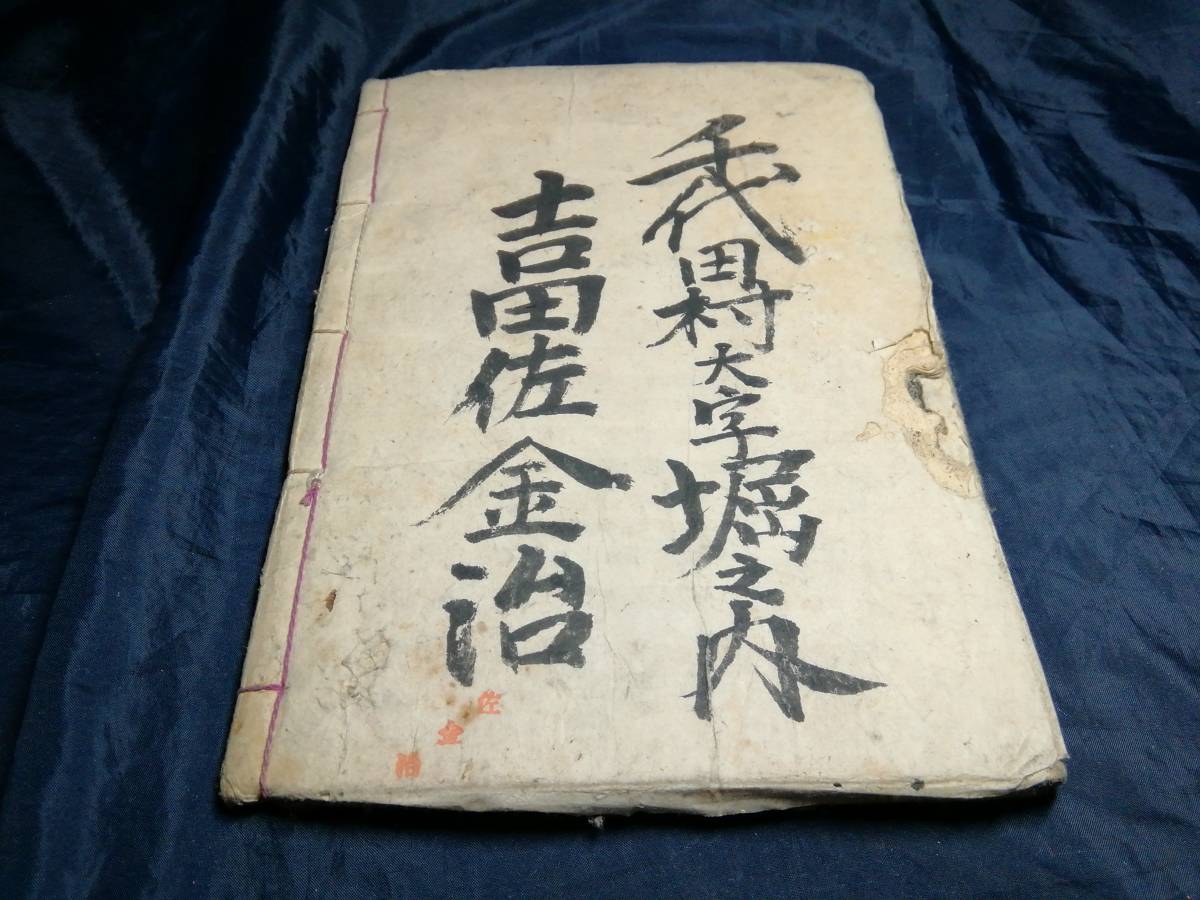 千代田村大字堀之内
吉田佐金治
佐金治